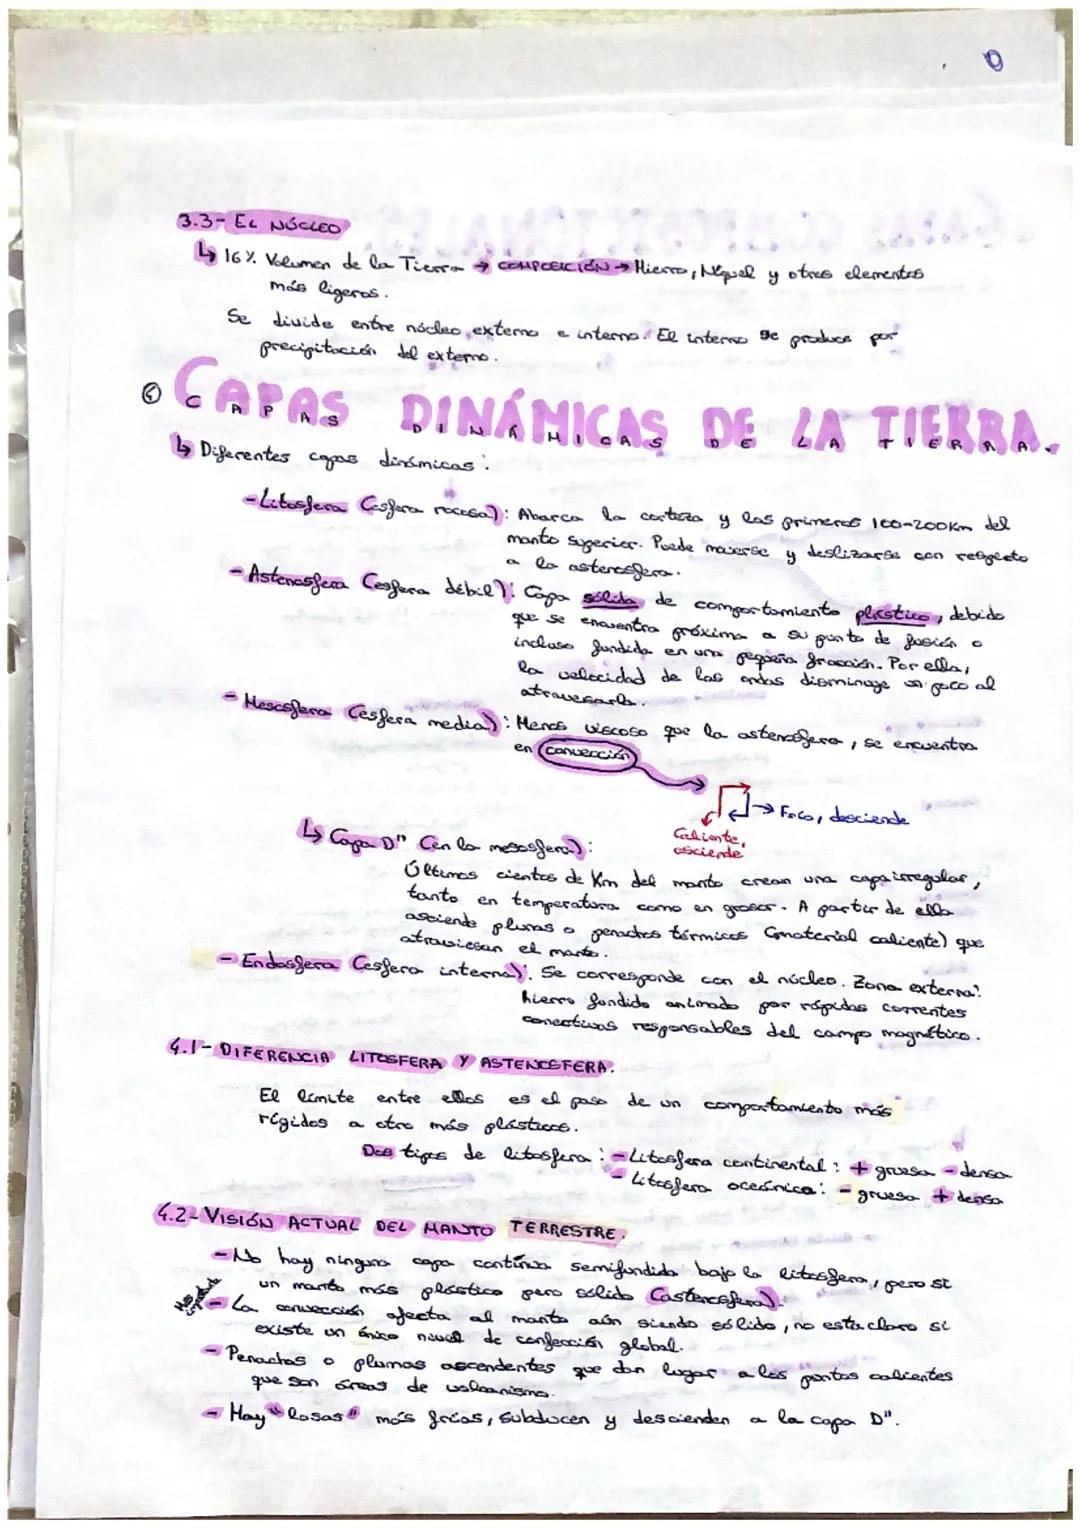 3.3- EL NÚCLEO
↳ 16% Volumen de la Tierra → COMPOSICIÓN → Hierro, Níquel y otros elementos
más ligeros.
Se divide entre núcleo externo e interno. El interno se produce por
precipitación del externo.
④ CAPAS DINÁMICAS DE LA TIERRA.
CAPAS DINÁMICAS DE LA TIERRA
↳ Diferentes capas dinámicas:
- Litosfera (esfera rocosa): Abarca la corteza y los primeros 100-200Km del
manto superior. Puede moverse y deslizarse con respecto
a la astenosfera.
- Astenosfera (esfera débil): Capa sólida de comportamiento plástico, debido
que se encuentra próxima a su punto de fusión o
incluso fundida en una pequeña fracción. Por ello,
la velocidad de las ondas disminuye un poco al
atravesarla.
- Mesosfera (esfera media): Menos viscoso que la astenosfera, se encuentra
en convección
→ Frío, desciende
Caliente,
asciende
↳ Capa D" (en la mesosfera):
Últimos cientos de Km del manto crean una capa irregular,
tanto en temperatura como en grosor. A partir de ella
asciende plumas o penachos térmicos (material caliente) que
atraviesan el manto.
- Endosfera (esfera interna): Se corresponde con el núcleo. Zona externa:
hierro fundido animado por rápidas corrientes
conectivas responsables del campo magnético.
4.1- DIFERENCIA LITOSFERA Y ASTENOSFERA.
El límite entre ellos es el paso de un comportamiento más
rígidos a otro más plásticos.
Dos tipos de litosfera: - Litosfera continental: + gruesa - densa
- Litosfera oceánica: - gruesa + densa
4.2- VISIÓN ACTUAL DEL MANTO TERRESTRE.
- No hay ninguna capa continua semifundida bajo la litosfera, pero si
un manto más plástico pero sólido (astenosfera).
Más importante
- La convección afecta al manto aún siendo sólido, no esta claro si
existe un único nivel de confección global.
- Penachos o plumas ascendentes que dan lugar a los puntos calientes
que son áreas de volcanismo.
- Hay "losas" más frías, subducen y descienden a la capa D".